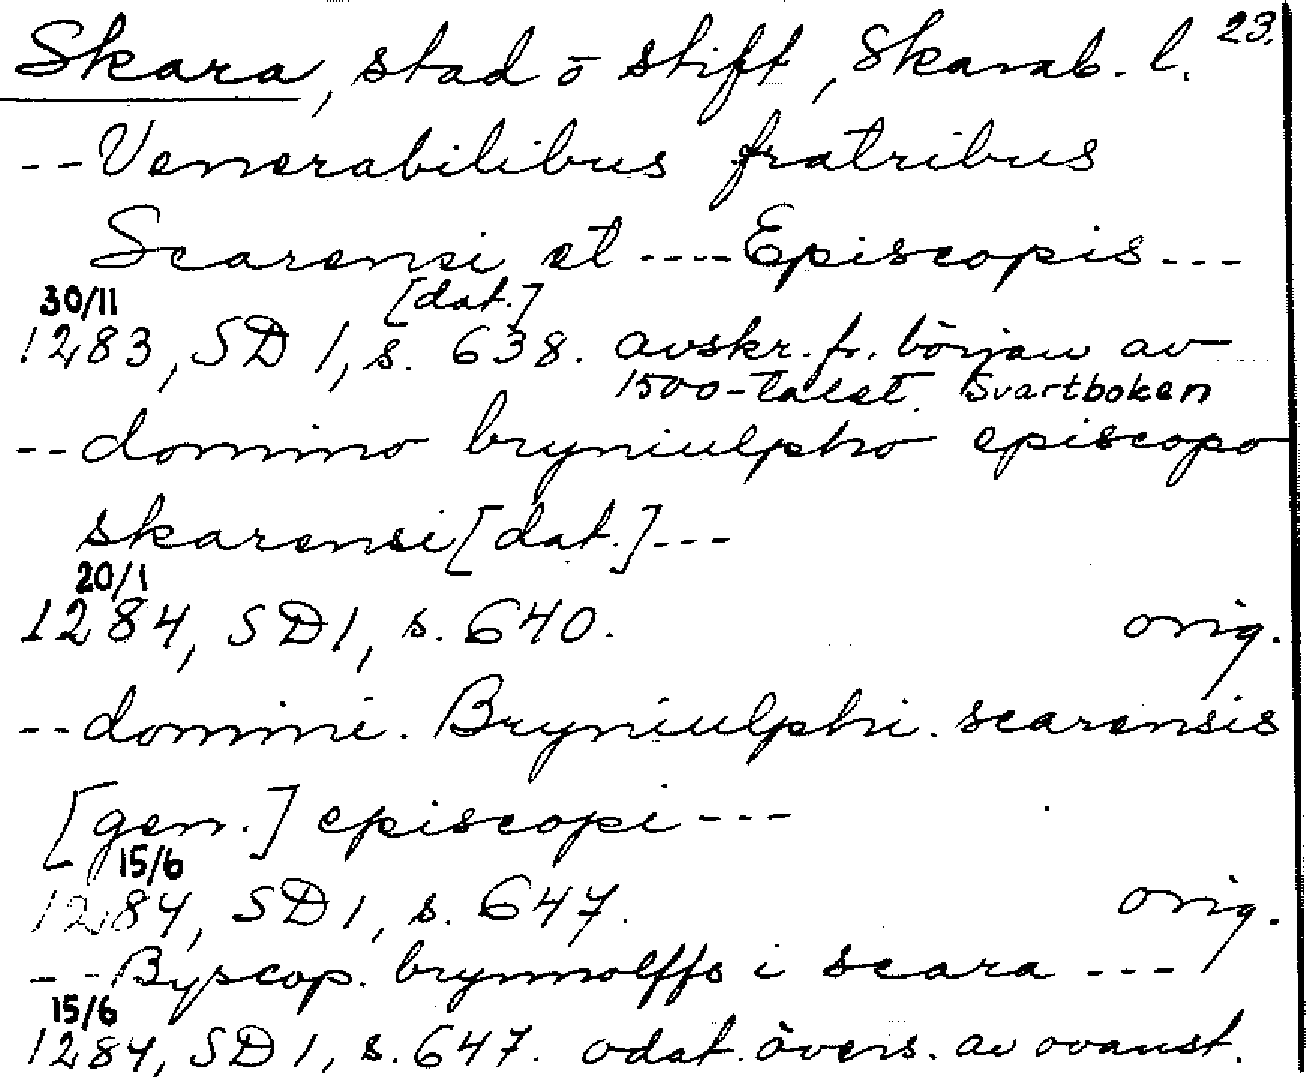 Skara, stad o stift, Skarab. l. 23.
-- Venerabilibus fratribus
Scarensi et ---- Episcopis ---
30/11 [dat.]
1283, SD 1, s. 638. avskr. fr. början av
1500-talet. Svartboken
-- domino bryniulpho episcopo
skarensi [dat.] ---
20/1
1284, SD 1, s. 640. orig.
-- domini. Bryniulphi. scarensis
[gen.] episcopi ---
15/6
1284, SD 1, s. 647. orig.
-- Byscop. brynnolffs i scara ---
15/6
1284, SD 1, s. 647. odat. övers. av ovanst.